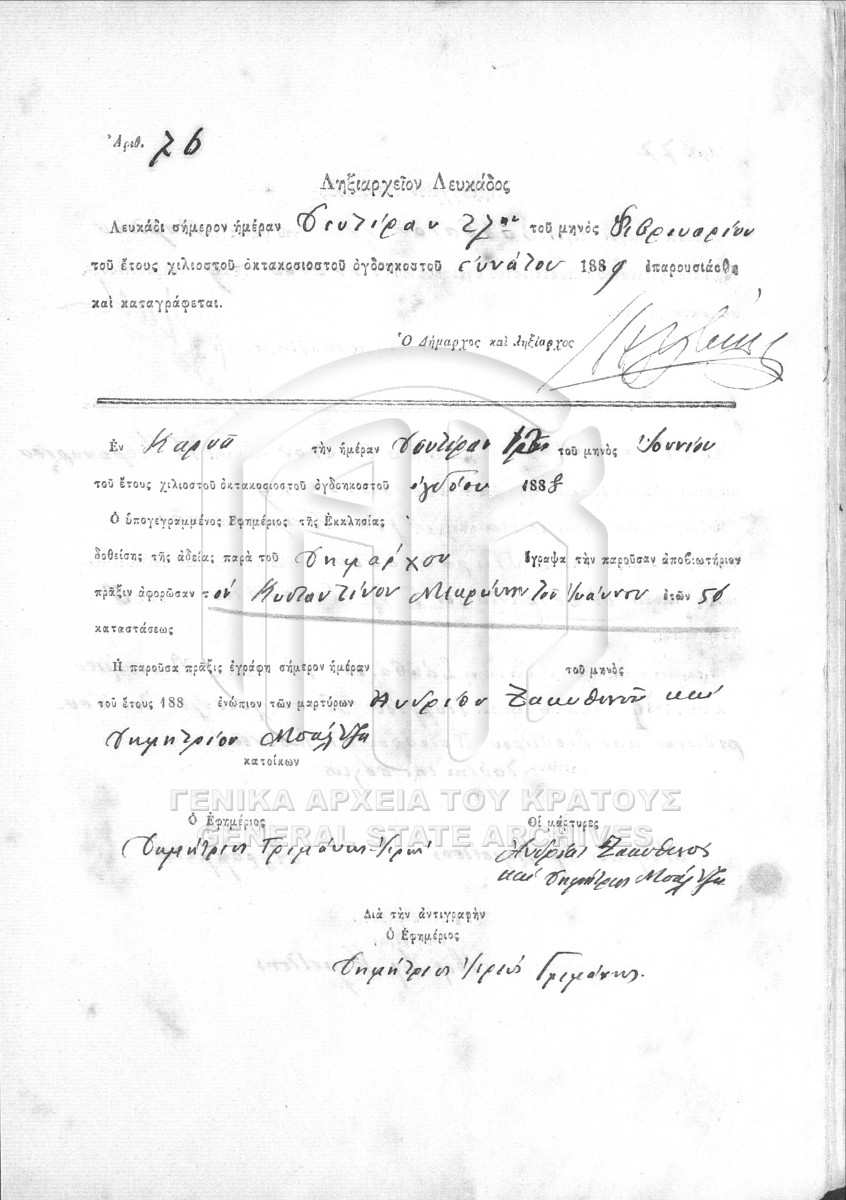 Ἀριθ. 76
Ληξιαρχεῖον Λευκάδος
Λευκάδι σήμερον ἡμέραν Δευτέραν 27ην τοῦ μηνὸς Φεβρουαρίου
τοῦ ἔτους χιλιοστοῦ ὀκτακοσιοστοῦ ὀγδοηκοστοῦ ἐννάτου 1889 ἐπαρουσιάσθη
καὶ καταγράφεται.
Ὁ Δήμαρχος καὶ Ληξίαρχος
Ἐν Καρυᾷ τὴν ἡμέραν Δευτέραν τοῦ μηνὸς Ἰουνίου
τοῦ ἔτους χιλιοστοῦ ὀκτακοσιοστοῦ ὀγδοηκοστοῦ ὀγδόου 1888
Ὁ ὑπογεγραμμένος Ἐφημέριος τῆς Ἐκκλησίας
δοθείσης τῆς ἀδείας παρὰ τοῦ Δημάρχου ἔγραψα τὴν παροῦσαν ἀποβιωτήριον
πρᾶξιν ἀφορῶσαν τὸν Κωσταντῖνον τοῦ Ἰωάννου ἐτῶν 56
καταστάσεως
Ἡ παροῦσα πρᾶξις ἐγράφη σήμερον ἡμέραν τοῦ μηνὸς
τοῦ ἔτους 188 ἐνώπιον τῶν μαρτύρων Ἀνδρέου Ζακυθινοῦ καὶ
Δημητρίου Μπάλτζη
κατοίκων
ΓΕΝΙΚΑ ΑΡΧΕΙΑ ΤΟΥ ΚΡΑΤΟΥΣ
GENERAL STATE ARCHIVES
Ὁ Ἐφημέριος Οἱ μάρτυρες
Δημήτριος Γριμάνης Ἱερεύς Ἀνδρέας Ζακυθινός
καὶ Δημήτριος Μπάλτζης
Διὰ τὴν ἀντιγραφὴν
Ὁ Ἐφημέριος
Δημήτριος Ἱερεύς Γριμάνης.